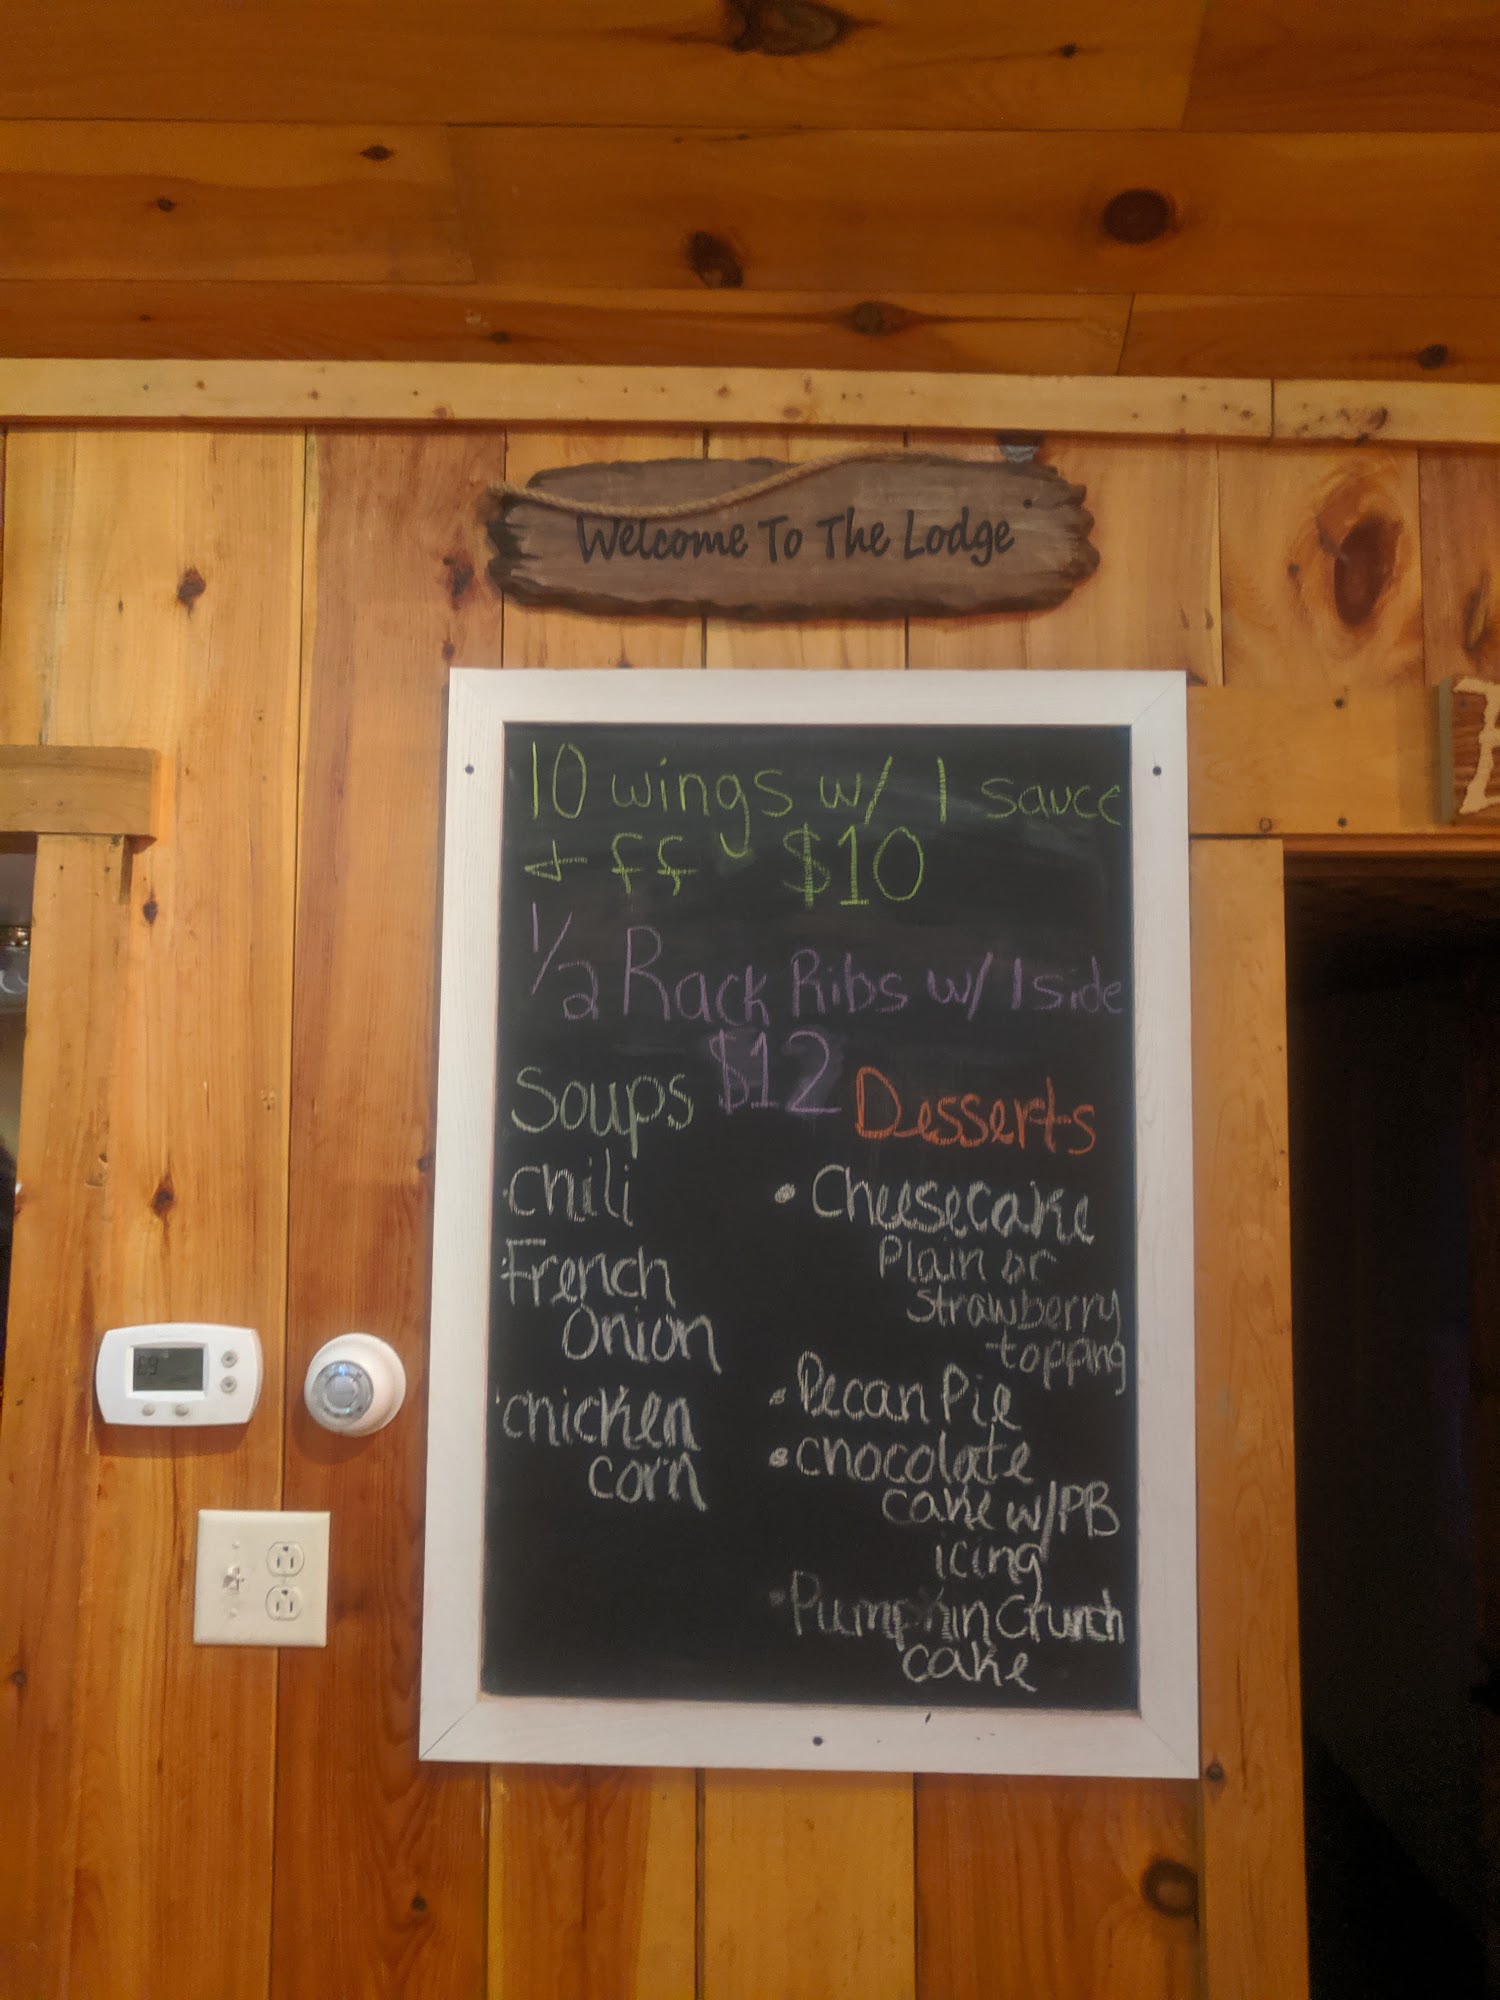 Welcome To The Lodge
10 wings w/ 1 sauce
+ ff $10
1/2 Rack Ribs w/ 1 side
$12
Soups
·Chili
·French
Onion
·Chicken
corn
Desserts
• Cheesecake
Plain or
strawberry
topping
• Pecan Pie
• chocolate
cake w/PB
icing
• Pumpkin Crunch
cake